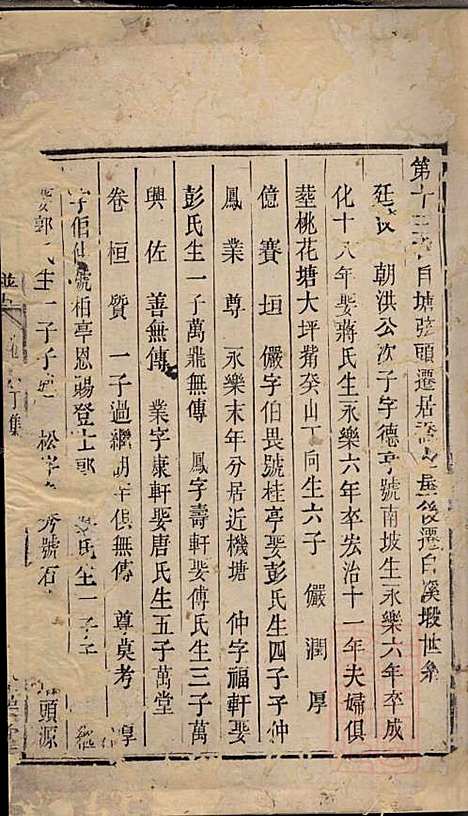 第十 自塘弦頭遷居 後遷白溪塅世系
廷 朝洪公次子字德亨號南坡生永樂六年卒成
化十八年娶蔣氏生永樂六年卒宏治十一年夫婦俱
塟桃花塘大坪觜癸山丁向生六子 儼 潤 厚
億 賽 垣 儼字伯畏號桂亭娶彭氏生四子子仲
鳳 業 尊 永樂末年分居近機塘 仲字福軒娶
彭氏生一子萬鼎無傳 鳳字壽軒娶傅氏生三子萬
興 佐 善無傳 業字康軒娶唐氏生五子萬堂
卷 桓 質 一子過繼 俱無傳 尊莫考 厚
字佰 號栢亭恩賜登士郎 氏生一子子
娶郭氏生一子子 松字 秀號石 頭源